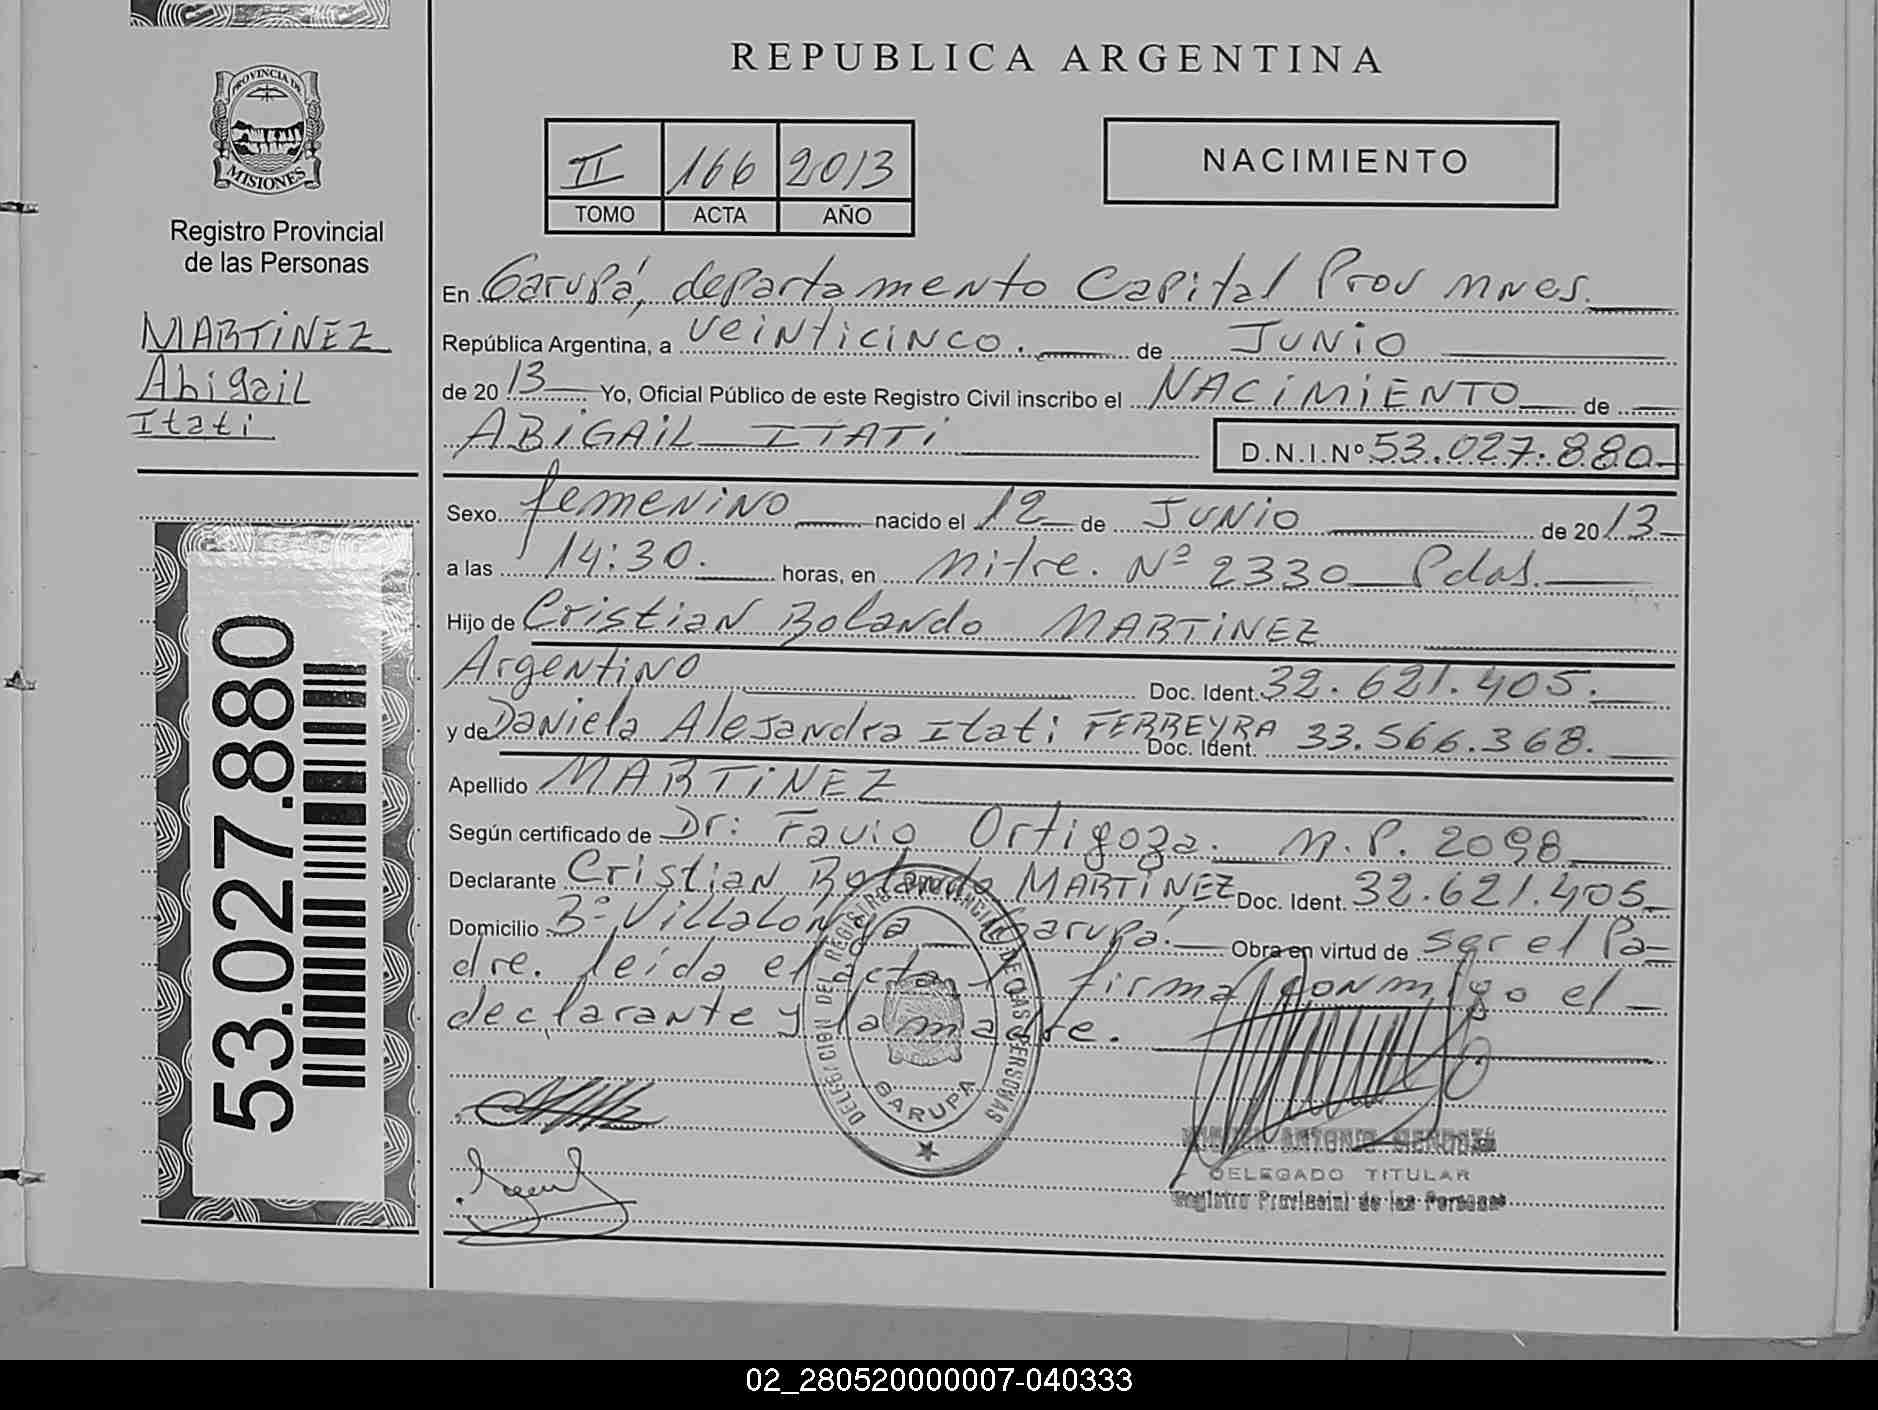 REPUBLICA ARGENTINA
PROVINCIA DE
MISIONES
Registro Provincial
de las Personas
MARTINEZ
Abigail
Itati
53.027.880
II 166 2013
TOMO ACTA AÑO
NACIMIENTO
En Garupá, departamento Capital Prov Mnes.
República Argentina, a veinticinco. de Junio
de 2013 Yo, Oficial Público de este Registro Civil inscribo el NACIMIENTO de
ABIGAIL ITATI D.N.I.Nº 53.027.880
Sexo femenino nacido el 12 de Junio de 2013
a las 14:30. horas, en Mitre. Nº 2330 Pdas.
Hijo de Cristian Rolando MARTINEZ
Argentino Doc. Ident. 32.621.405.
y de Daniela Alejandra Itati FERREYRA Doc. Ident. 33.566.368.
Apellido MARTINEZ
Según certificado de Dr: Favio Ortigoza. M.P. 2098
Declarante Cristian Rolando MARTINEZ Doc. Ident. 32.621.405
Domicilio Bº Villalonga Garupá. Obra en virtud de ser el Pa-
dre. leída el acta firma conmigo el
declarante y la madre.
DELEGACION DEL REGISTRO PROVINCIAL DE LAS PERSONAS
GARUPA
ANTONIO MENDOZA
DELEGADO TITULAR
Registro Provincial de las Personas
02_280520000007-040333